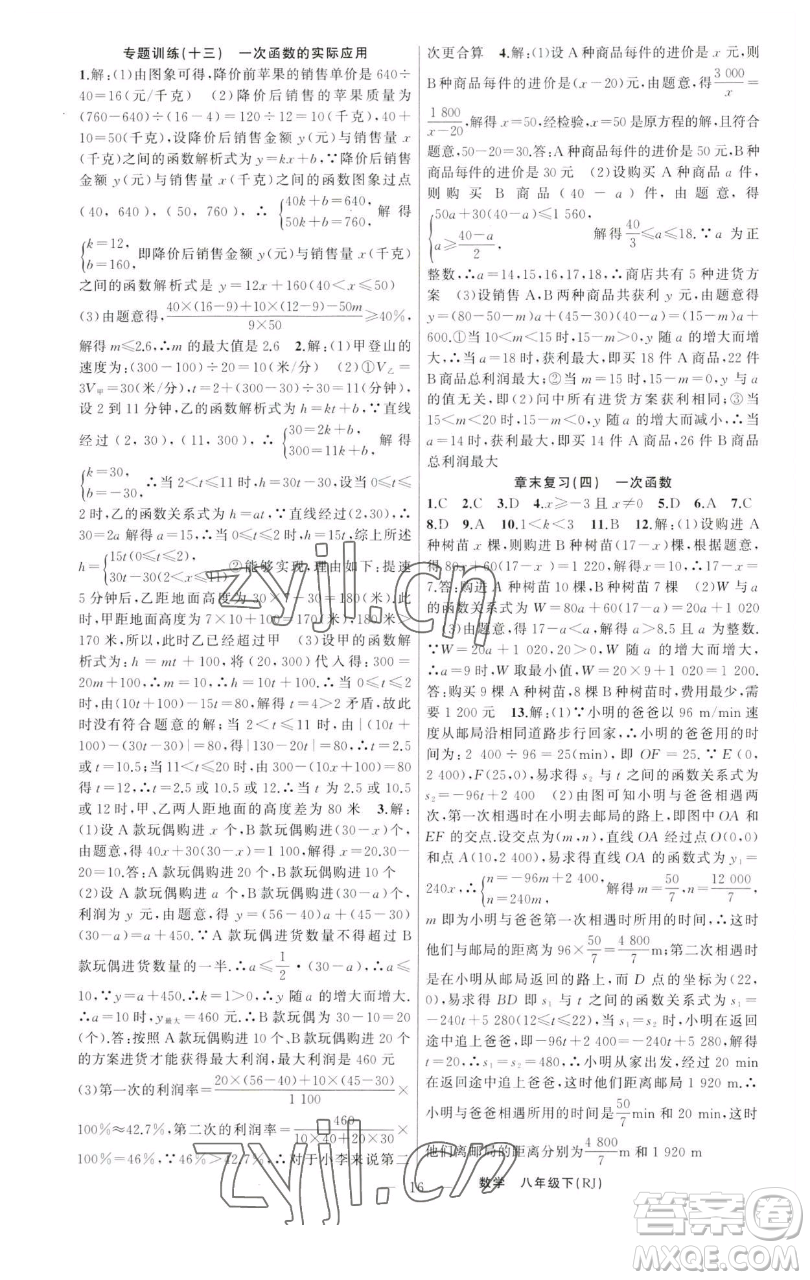 专题训练(十三) 一次函数的实际应用
1.解:(1)由图象可得,降价前苹果的销售单价是 640÷
40=16(元/千克) (2)降价后销售的苹果质量为
(760-640)÷(16-4)=120÷12=10(千克),40+
10=50(千克),设降价后销售金额 y(元)与销售量 x
(千克)之间的函数解析式为 y=kx+b,∵降价后销售
金额 y(元)与销售量 x(千克)之间的函数图象过点
(40,640),(50,760),∴{40k+b=640, 50k+b=760, 解得
{k=12, b=160, 即降价后销售金额 y(元)与销售量 x(千克)
之间的函数解析式为 y=12x+160(40<x≤50)
(3)由题意得,40×(16-9)+10×(12-9)-50m/9×50≥40%,
解得 m≤2.6,∴m 的最大值是 2.6 2.解:(1)甲登山的
速度为:(300-100)÷20=10(米/分) (2)①V乙=
3V甲=30(米/分),t=2+(300-30)÷30=11(分钟),
设 2 到 11 分钟,乙的函数解析式为 h=kt+b,∵直线
经过(2,30),(11,300),∴{30=2k+b, 300=11k+b, 解得
{k=30, b=-30, ∴当 2<t≤11 时,h=30t-30,当 0≤t≤
2时,乙的函数关系式为 h=at,∵直线过(2,30),∴
30=2a,解得 a=15,∴当 0≤t≤2 时,h=15t,综上所述
h={15t(0≤t≤2), 30t-30(2<t≤11) ②能够实现,理由如下:提速
5 分钟后,乙距地面高度为 30×7-30=180(米),此
时,甲距地面高度为 7×10+100=170(米),180 米>
170 米,所以,此时乙已经超过甲 (3)设甲的函数解
析式为:h=mt+100,将(20,300)代入得:300=
20m+100,∴m=10,∴h=10t+100,∴当 0≤t≤2
时,由(10t+100)-15t=80,解得 t=4>2 矛盾,故此
时没有符合题意的解;当 2<t≤11 时,由|(10t+
100)-(30t-30)|=80 得|130-20t|=80,∴t=2.5
或 t=10.5;当 11<t≤20 时,由 300-(10t+100)=80
得 t=12,∴t=2.5 或 t=10.5 或 t=12,∴当 t 为 2.5 或 10.5 或
12 时,甲、乙两人距地面的高度差为 80 米 3.解:
(1)设 A 款玩偶购进 x 个,B 款玩偶购进(30-x)个,
由题意,得 40x+30(30-x)=1 100,解得 x=20.30-
20=10.答:A 款玩偶购进 20 个,B 款玩偶购进 10 个
(2)设 A 款玩偶购进 a 个,B 款玩偶购进(30-a)个,获
利润为 y 元,由题意,得 y=(56-40)a+(45-30)
(30-a)=a+450.∵A 款玩偶进货数量不得超过 B
款玩偶进货数量的一半.∴a≤1/2·(30-a),∴a≤
10,∵y=a+450.∴k=1>0,∴y 随 a 的增大而增大.
∴a=10 时,y最大=460 元.∴B 款玩偶为 30-10=20
(个).答:按照 A 款玩偶购进 10 个、B 款玩偶购进 20 个
的方案进货才能获得最大利润,最大利润是 460 元
(3)第一次的利润率=20×(56-40)+10×(45-30)/1 100×
100%≈42.7%,第二次的利润率=460/10×40+20×30×
100%=46%,∵46%>42.7%,∴对于小李来说第二
次更合算 4.解:(1)设 A 种商品每件的进价是 x 元,则
B 种商品每件的进价是(x-20)元,由题意,得3 000/x=
1 800/x-20,解得 x=50,经检验,x=50 是原方程的解,且符合
题意,50-20=30.答:A 种商品每件的进价是 50 元,B
种商品每件的进价是 30 元 (2)设购买 A 种商品 a 件,
则购买 B 商品(40-a)件,由题意,得
{50a+30(40-a)≤1 560, a≥40-a/2, 解得40/3≤a≤18.∵a 为正
整数,∴a=14,15,16,17,18,∴商店共有 5 种进货方
案 (3)设销售 A、B 两种商品共获利 y 元,由题意得
y=(80-50-m)a+(45-30)(40-a)=(15-m)a+
600.①当 10<m<15 时,15-m>0,y 随 a 的增大而增
大,∴当 a=18 时,获利最大,即买 18 件 A 商品,22 件
B 商品总利润最大;②当 m=15 时,15-m=0,y 与 a
的值无关,即(2)问中所有进货方案获利相同;③当
15<m<20 时,15-m<0,y 随 a 的增大而减小,∴当
a=14 时,获利最大,即买 14 件 A 商品,26 件 B 商品
总利润最大
章末复习(四) 一次函数
1.C 2.C 3.D 4.x≥-3 且 x≠0 5.D 6.A 7.C
8.D 9.A 10.1<k<3 11.B 12.解:(1)设购进 A
种树苗 x 棵,则购进 B 种树苗(17-x)棵,根据题意,
得 80x+60(17-x)=1 220,解得 x=10,∴17-x=7.
答:购进 A 种树苗 10 棵,B 种树苗 7 棵 (2)W 与 a
的函数关系式为 W=80a+60(17-a)=20a+1 020
(3)由题意,得 17-a<a,解得 a>8.5 且 a 为整数.
∵W=20a+1 020,20>0,∴W 随 a 的增大而增大.
∴a=9 时,W 取最小值,W=20×9+1 020=1 200.
答:购买 9 棵 A 种树苗,8 棵 B 种树苗时,费用最少,需
要 1 200 元 13.解:(1)∵小明的爸爸以 96 m/min的
速度从邮局沿相同道路步行回家,∴小明的爸爸用的时
间为:2 400÷96=25(min),即 OF=25.∵E(0,
2 400),F(25,0),易求得 s₂ 与 t 之间的函数关系式为
s₂=-96t+2 400 (2)由图可知,小明与爸爸有两次
相遇,第一次是在小明去邮局的路上,即图中 OA 与
EF 的交点.设交点为(m,n),直线 OA 经过点 O(0,0)
和点 A(10,2 400),易求得直线 OA 的关系式为 y₁=
240x,∴{n=-96m+2 400, n=240m, 解得 m=50/7,n=12 000/7,
m 即为小明与爸爸第一次相遇时所用的时间,∴此时
他们与邮局的距离为 96×50/7=4 800/7 m;第二次相遇时
是在小明从邮局返回的路上,而 D 点的坐标为(22,
0),易求得 BD 即 s₁ 与 t 之间的函数关系式为 s₁=
-240t+5 280(12≤t≤22),当小明从邮局返回在
途中追上爸爸时,-96t+2 400=-240t+5 280,解
得 t=20,∴小明从家出发,经过 20 min 在返回
途中追上爸爸,这时他们距离邮局 1 920 m,∴
小明与爸爸相遇所用的时间是50/7 min 和 20 min,这时
他们离邮局的距离分别为4 800/7 m 和 1 920 m
16
数学 八年级下(RJ)
zyjl.cn
zyjl.cn
答案圈
MXQE.COM